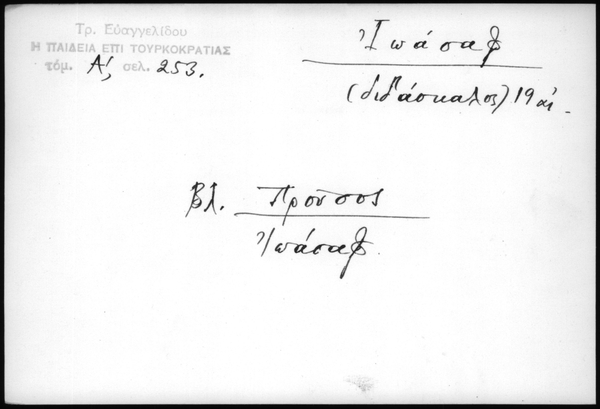 Τρ. Εὐαγγελίδου
Η ΠΑΙΔΕΙΑ ΕΠΙ ΤΟΥΡΚΟΚΡΑΤΙΑΣ
τόμ. Α', σελ. 253.
Ἰωάσαφ
(διδάσκαλος) 19 αἰ.
Βλ. Προῦσσος
Ἰωάσαφ